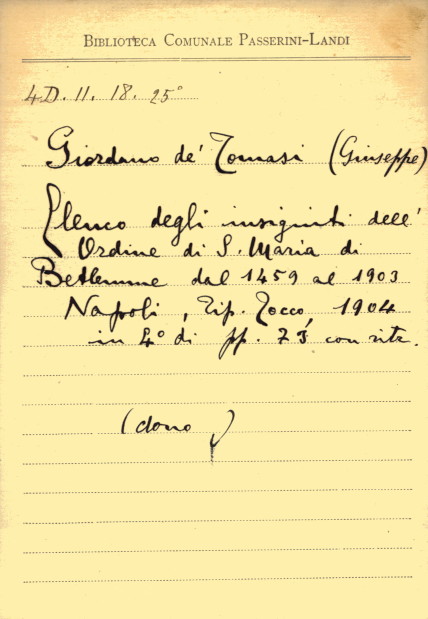 BIBLIOTECA COMUNALE PASSERINI-LANDI
4D. 11. 18. 25°
Giordano de' Tomasi (Giuseppe)
Elenco degli insigniti dell'
Ordine di S. Maria di
Betlemme dal 1459 al 1903
Napoli, Tip. Tocco, 1904
in 4° di pp. 73, con ritr.
(dono)